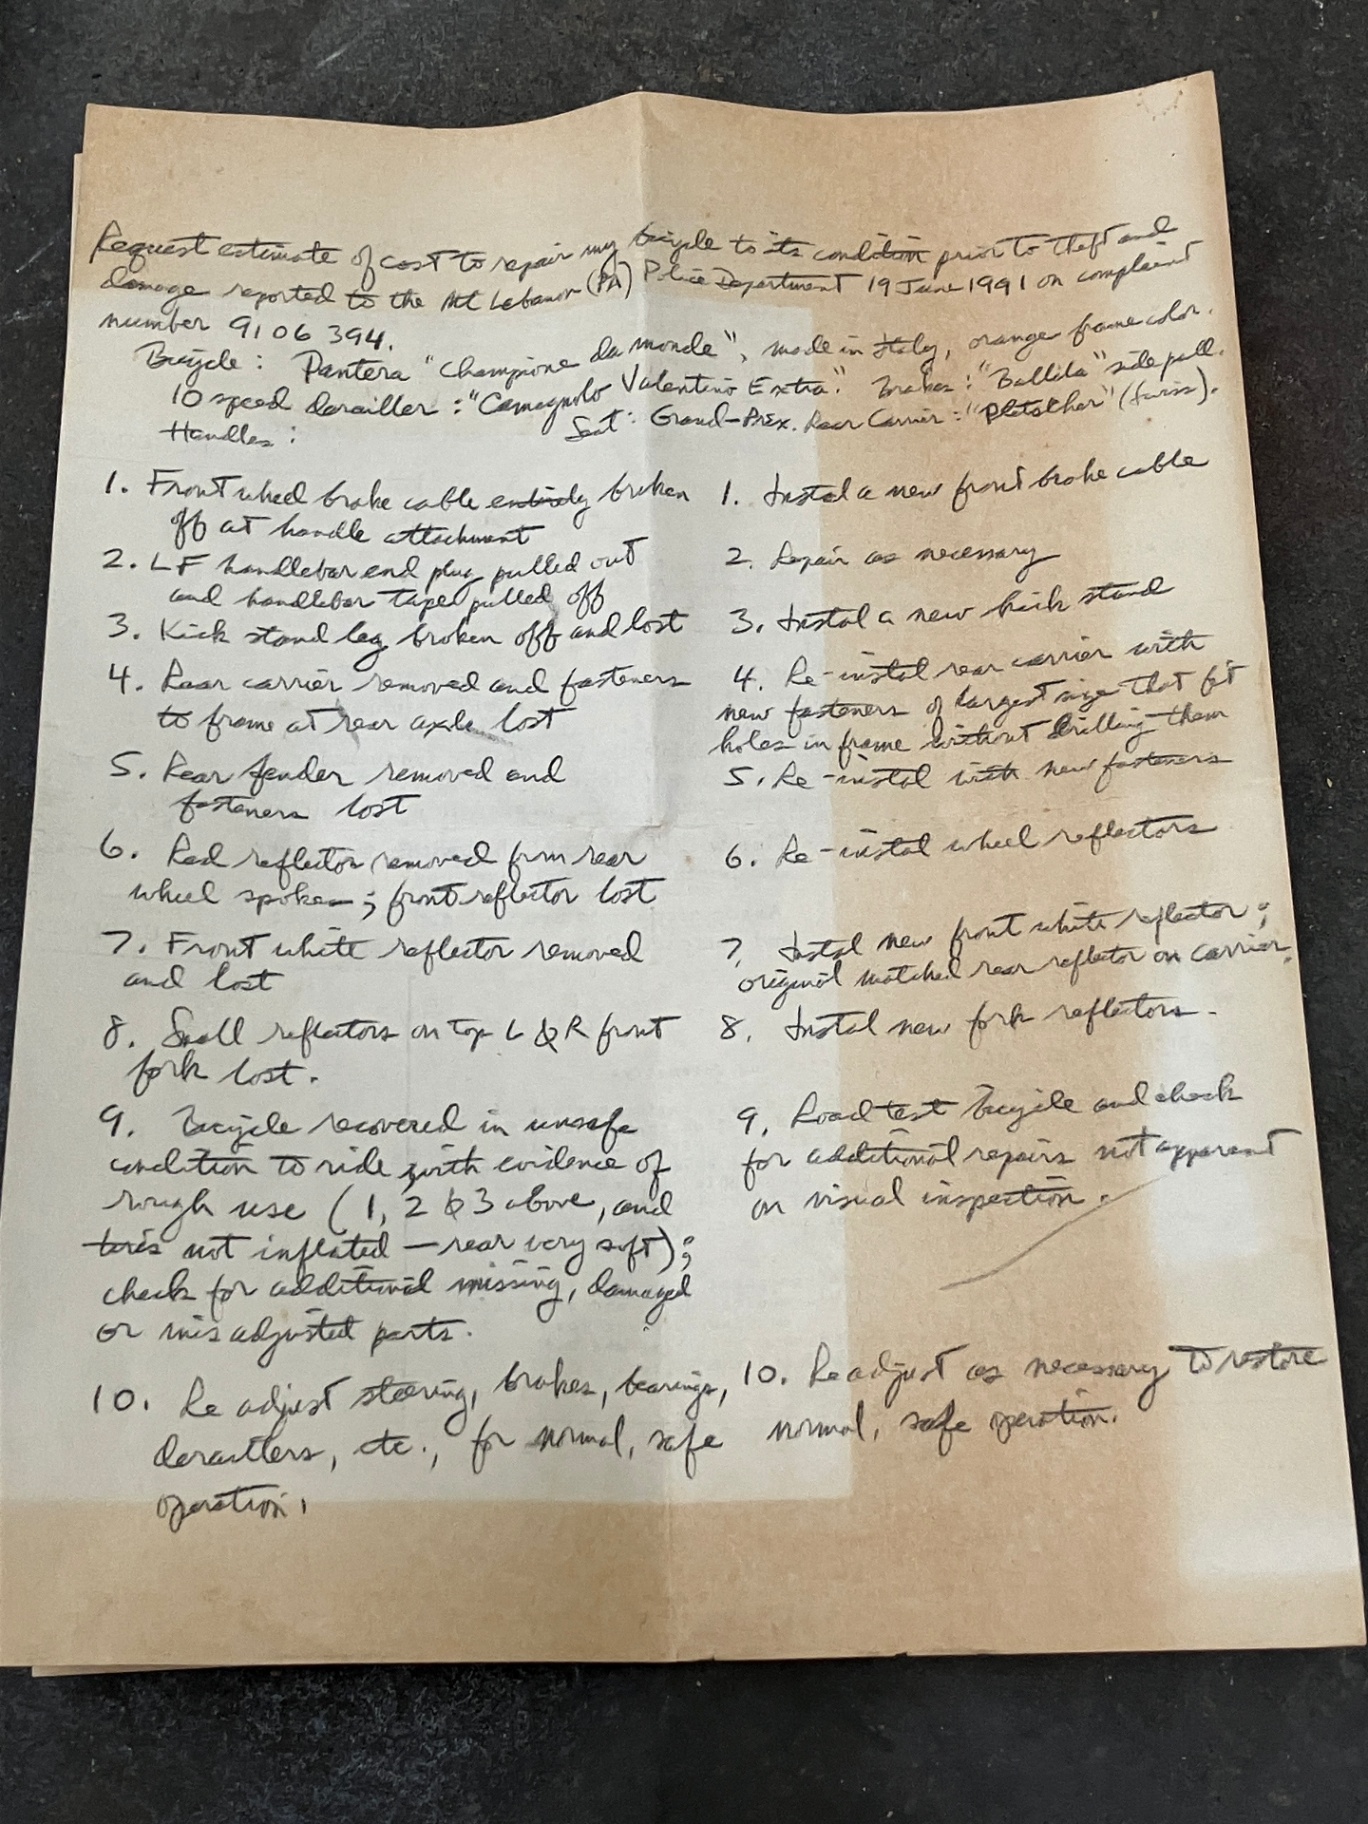 Request estimate of cost to repair my bicycle to its condition prior to theft and
damage reported to the Mt Lebanon (PA) Police Department 19 June 1991 on complaint
number 9106 394.
Bicycle: Pantera "Champione da monde", made in Italy, orange frame color.
10 speed derailler: "Camagnolo Valentino Extra". Brakes: "Ballila" side pull.
Handles: Seat: Grand-Prix. Rear Carrier: "Pletscher" (Swiss).
1. Front wheel brake cable entirely broken
off at handle attachment
2. LF handlebar end plug pulled out
and handlebar tape pulled off
3. Kick stand leg broken off and lost
4. Rear carrier removed and fasteners
to frame at rear axle lost
5. Rear fender removed and
fasteners lost
6. Red reflector removed from rear
wheel spokes; front reflector lost
7. Front white reflector removed
and lost
8. Small reflectors on top L & R front
fork lost.
9. Bicycle recovered in unsafe
condition to ride with evidence of
rough use (1, 2 & 3 above, and
tires not inflated — rear very soft);
check for additional missing, damaged
or misadjusted parts.
10. Re adjust steering, brakes, bearings,
derailters, etc., for normal, safe
operation.
1. Instal a new front brake cable
2. Repair as necessary
3. Instal a new kick stand
4. Re-instal rear carrier with
new fasteners of largest size that fit
holes in frame without drilling them
5. Re-instal with new fasteners
6. Re-instal wheel reflectors
7. Instal new front white reflector;
original matched rear reflector on carrier.
8. Instal new fork reflectors.
9. Road test bicycle and check
for additional repairs not apparent
on visual inspection.
10. Re adjust as necessary to restore
normal, safe operation.